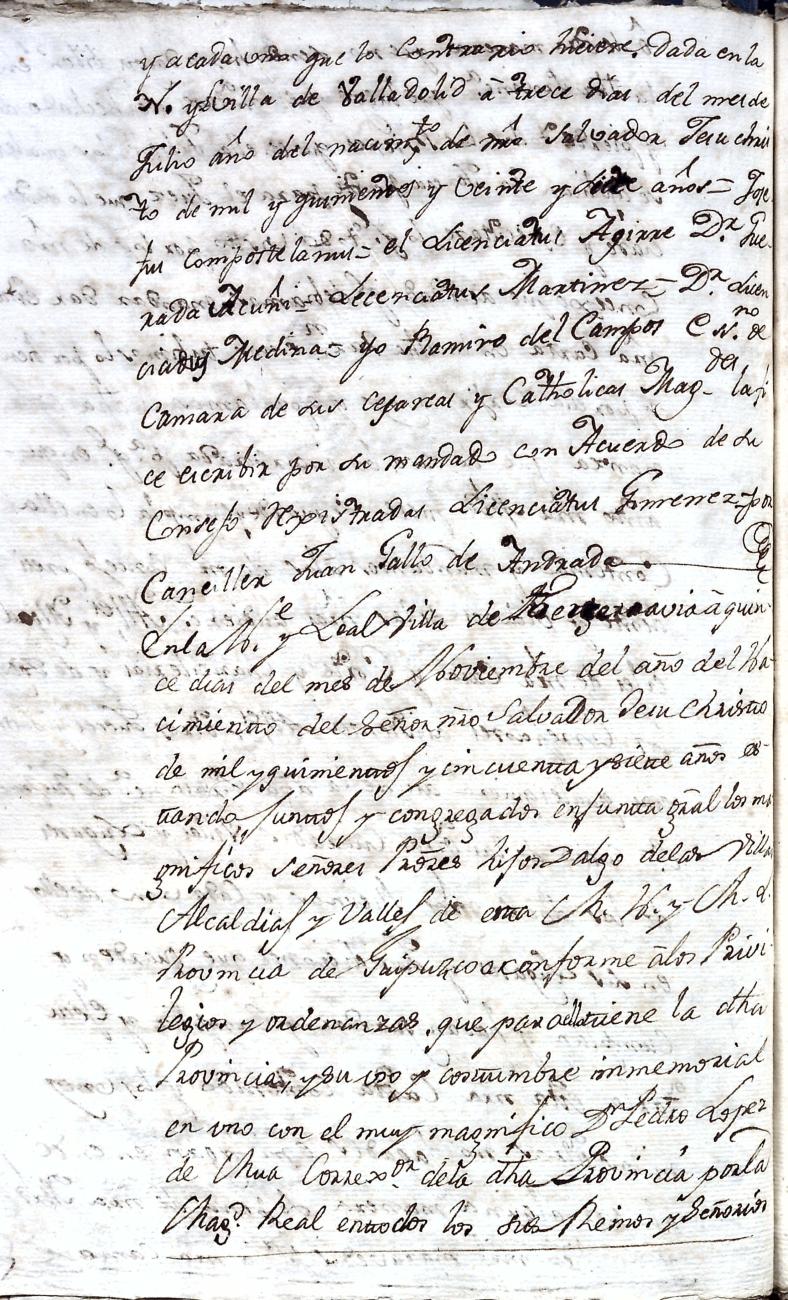 y acada uno que lo Contrario hiciere. dada en la
N. y Villa de Valladolid â trece dias del mes de
Julio año del nacimto de nro Salvador Jesu chris
to de mil y quinientos y veinte y siete años = Jose
fus Compostelanus = el Licenciatus Agirre Dr. Gue
rada Acuñi = Licenciatus Martinez = Dr. Licen
ciadus Medina = yo Ramiro del Campos Cno. N. de
Camara de sus Cesareas y Catholicas Magdes la fi
ce escribir por su mandado con Acuerdo de su
Consejo, Rexistradas Licenciatus Gimenez = por
Canciller Juan Gallo de Andrada
En la N.e y Leal Villa de aviâ quin
ce dias del mes de Noviembre del año del Na
cimientto del Señor nro Salvador Jesu Christto
de mil y quinienttos y cincuentta y siette años es
ttando junttos y congregados en juntta gral los ma
gnificos Señores Prores hijos Dalgo de las Villas
Alcaldias y Valles de estta M. N. y M. L.
Provincia de Guipuzcoa conforme â los Privi
legios y ordenanzas, que para ello ttiene la dtha
Provincia, y su uso y costtumbre inmemorial
en uno con el muy magnifico Dr Pedro Lopez
de Chua Correxor. de la dtha Provincia por la
Magd. Real en ttodos los sus Reinos y Señorios